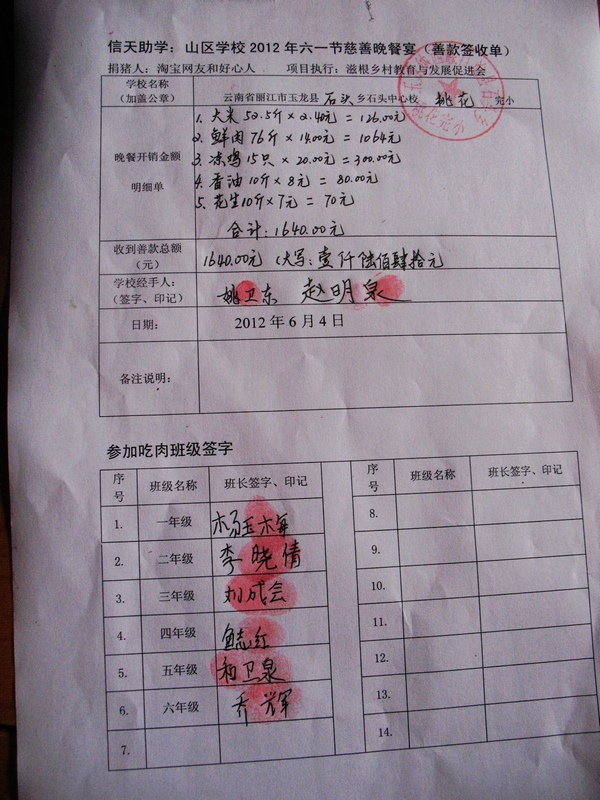 信天助学：山区学校2012年六一节慈善晚餐宴（善款签收单）
捐猪人：淘宝网友和好心人 项目执行：滋根乡村教育与发展促进会
学校名称
（加盖公章）
云南省丽江市玉龙县 石头 乡石头中心校 桃花 完小
晚餐开销金额
明细单
1. 大米 52.5斤 × 2.40元 = 126.00元
2. 鲜肉 76斤 × 14.00元 = 1064元
3. 冻鸡 15只 × 20.00元 = 300.00元
4. 香油 10斤 × 8元 = 80.00元
5. 花生 10斤 × 7元 = 70元
合计：1640.00元
收到善款总额
（元）
1640.00元（大写：壹仟陆佰肆拾元
学校经手人：
（签字、印记）
姚卫东 赵明泉
日期：
2012年6月4日
备注说明：
参加吃肉班级签字
序号 班级名称 班长签字、印记
1. 一年级 杨玉梅
2. 二年级 李晓倩
3. 三年级 刘成会
4. 四年级 志红
5. 五年级 和卫泉
6. 六年级 乔辉
7.
序号 班级名称 班长签字、印记
8.
9.
10.
11.
12.
13.
14.
桃花完小